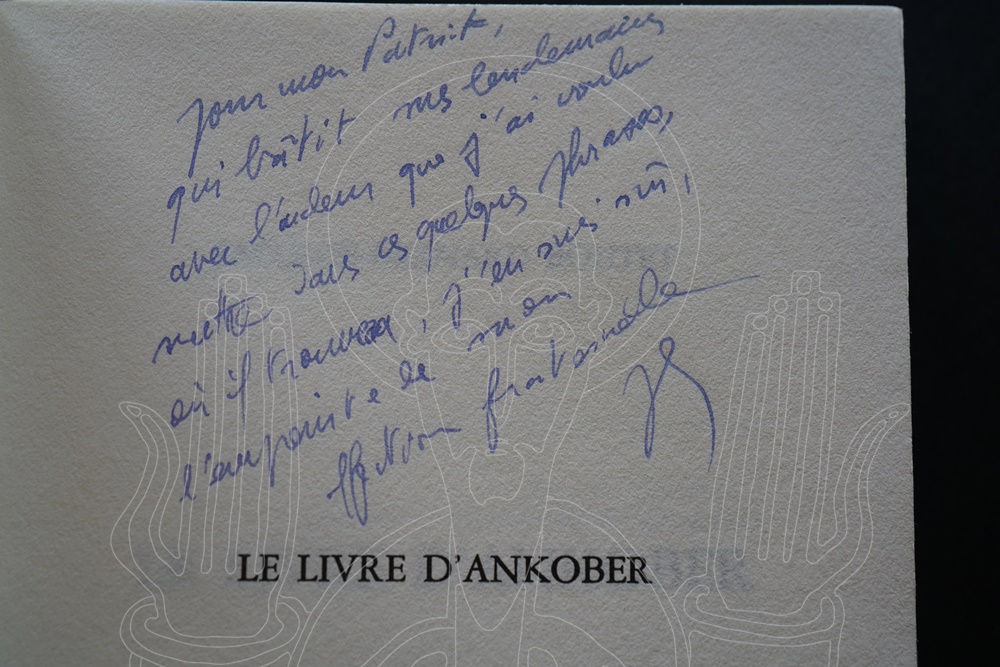 Pour mon Patrick,
qui bâtit mes lendemains
avec l'ardeur que j'ai voulu
mettre dans ces quelques phrases,
où il trouvera, j'en suis sûr,
l'empreinte de mon
affection fraternelle
LE LIVRE D'ANKOBER